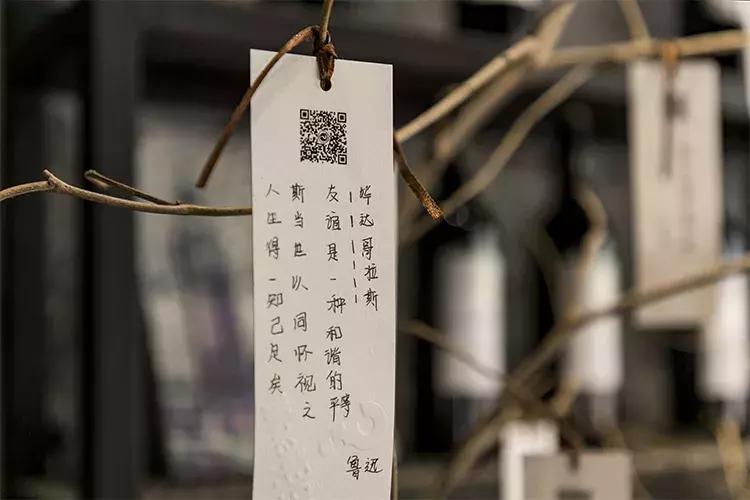 人生得一知己足矣
斯当世以同怀视之
友谊是一种和谐的平等
------
毕达哥拉斯
鲁迅